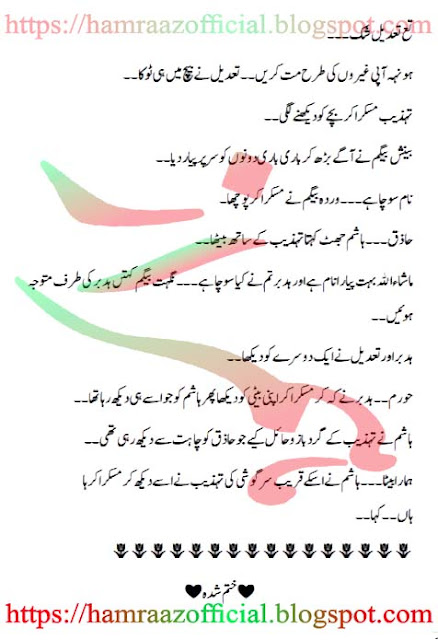 https://hamraazofficial.blogspot.com
تع تعدیل شک۔۔۔۔
ہونہہ آپی غیروں کی طرح مت کریں۔۔ تعدیل نے بیچ میں ہی ٹوکا۔۔
تہذیب مسکرا کر بچے کو دیکھنے لگی۔۔
بینش بیگم نے آگے بڑھ کر باری باری دونوں کو سر پر پیار دیا۔۔
نام سوچا ہے۔۔۔ وردہ بیگم نے مسکرا کر پوچھا۔
حاذق۔۔۔ ہاشم جھٹ کہتا تہذیب کے ساتھ بیٹھا۔۔
ماشاءاللہ بہت پیارا نام ہے اور ہدبر تم نے کیا سوچا ہے۔۔۔ نگہت بیگم کہتیں ہدبر کی طرف متوجہ
ہوئیں۔۔
ہدبر اور تعدیل نے ایک دوسرے کو دیکھا۔۔
حورم۔۔ ہدبر نے کہہ کر مسکرا کر اپنی بیٹی کو دیکھا پھر ہاشم کو جو اسے ہی دیکھ رہا تھا۔۔
ہاشم نے تہذیب کے گرد بازو حائل کیے جو حاذق کو چاہت سے دیکھ رہی تھی۔۔
ہمارا بیٹا۔۔۔ ہاشم نے اسکے قریب سرگوشی کی تہذیب نے اسے دیکھ کر مسکرا کر ہا
ہاں۔۔ کہا۔۔
♥ختم شدہ♥
https://hamraazofficial.blogspot.com